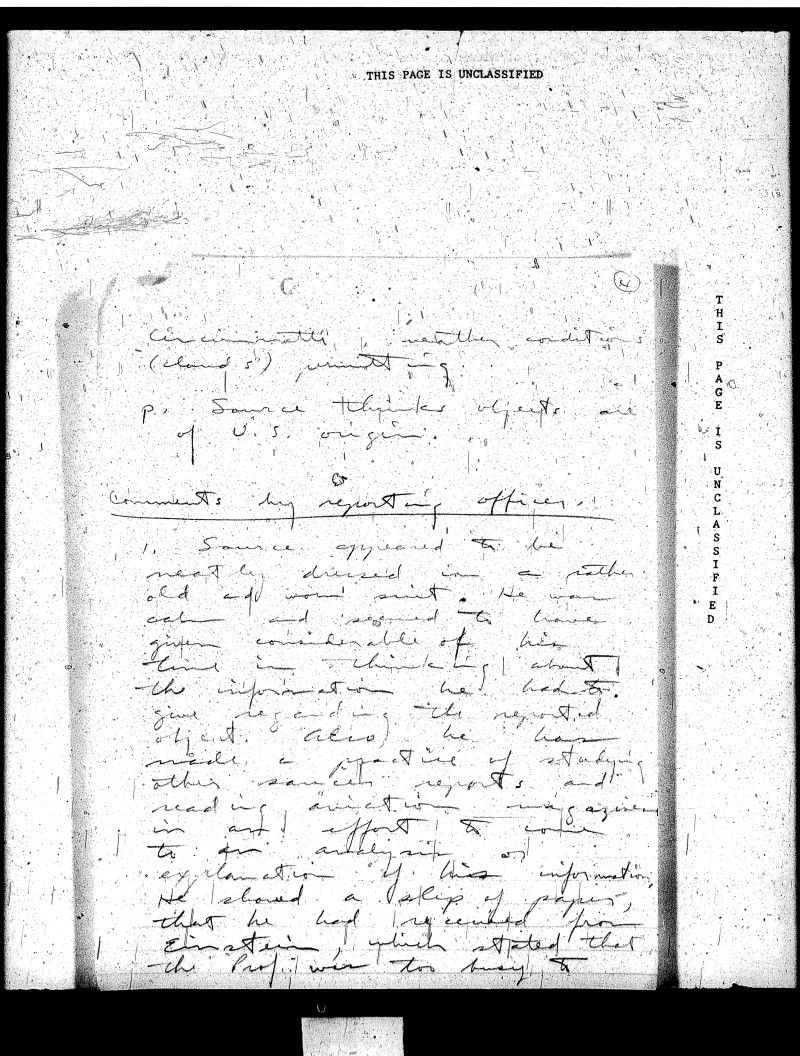 THIS PAGE IS UNCLASSIFIED
4
Cincinnatti, weather conditions
(clouds) permitting.
p. Source thinks objects are
of U.S. origin.
Comments by reporting officer.
1. Source appeared to be
neatly dressed in a rather
old and worn suit. He was
calm and seemed to have
given considerable of his
time in thinking about
the information he had to
give regarding the reported
object. Also) he has
made a practice of studying
other saucer reports and
reading aviation magazines
in an effort to come
to an analysis or
explanation of his information.
He showed a slip of paper,
that he had received from
Einstein, which stated that
the Prof. was too busy to
THIS PAGE IS UNCLASSIFIED